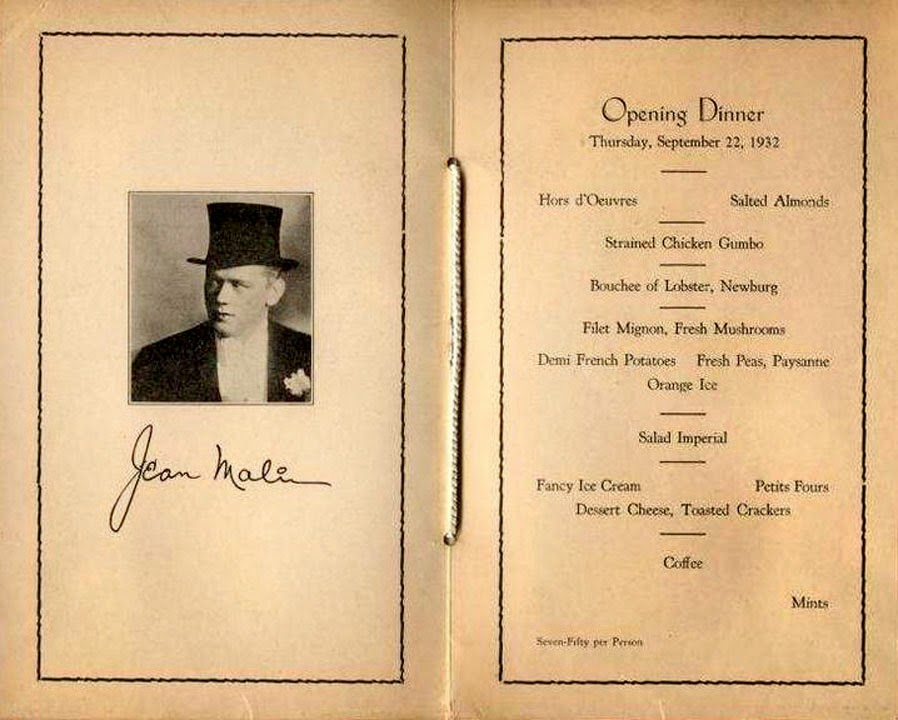 Jean Malin
Opening Dinner
Thursday, September 22, 1932
Hors d'Oeuvres Salted Almonds
Strained Chicken Gumbo
Bouchee of Lobster, Newburg
Filet Mignon, Fresh Mushrooms
Demi French Potatoes Fresh Peas, Paysanne
Orange Ice
Salad Imperial
Fancy Ice Cream Petits Fours
Dessert Cheese, Toasted Crackers
Coffee
Mints
Seven-Fifty per Person